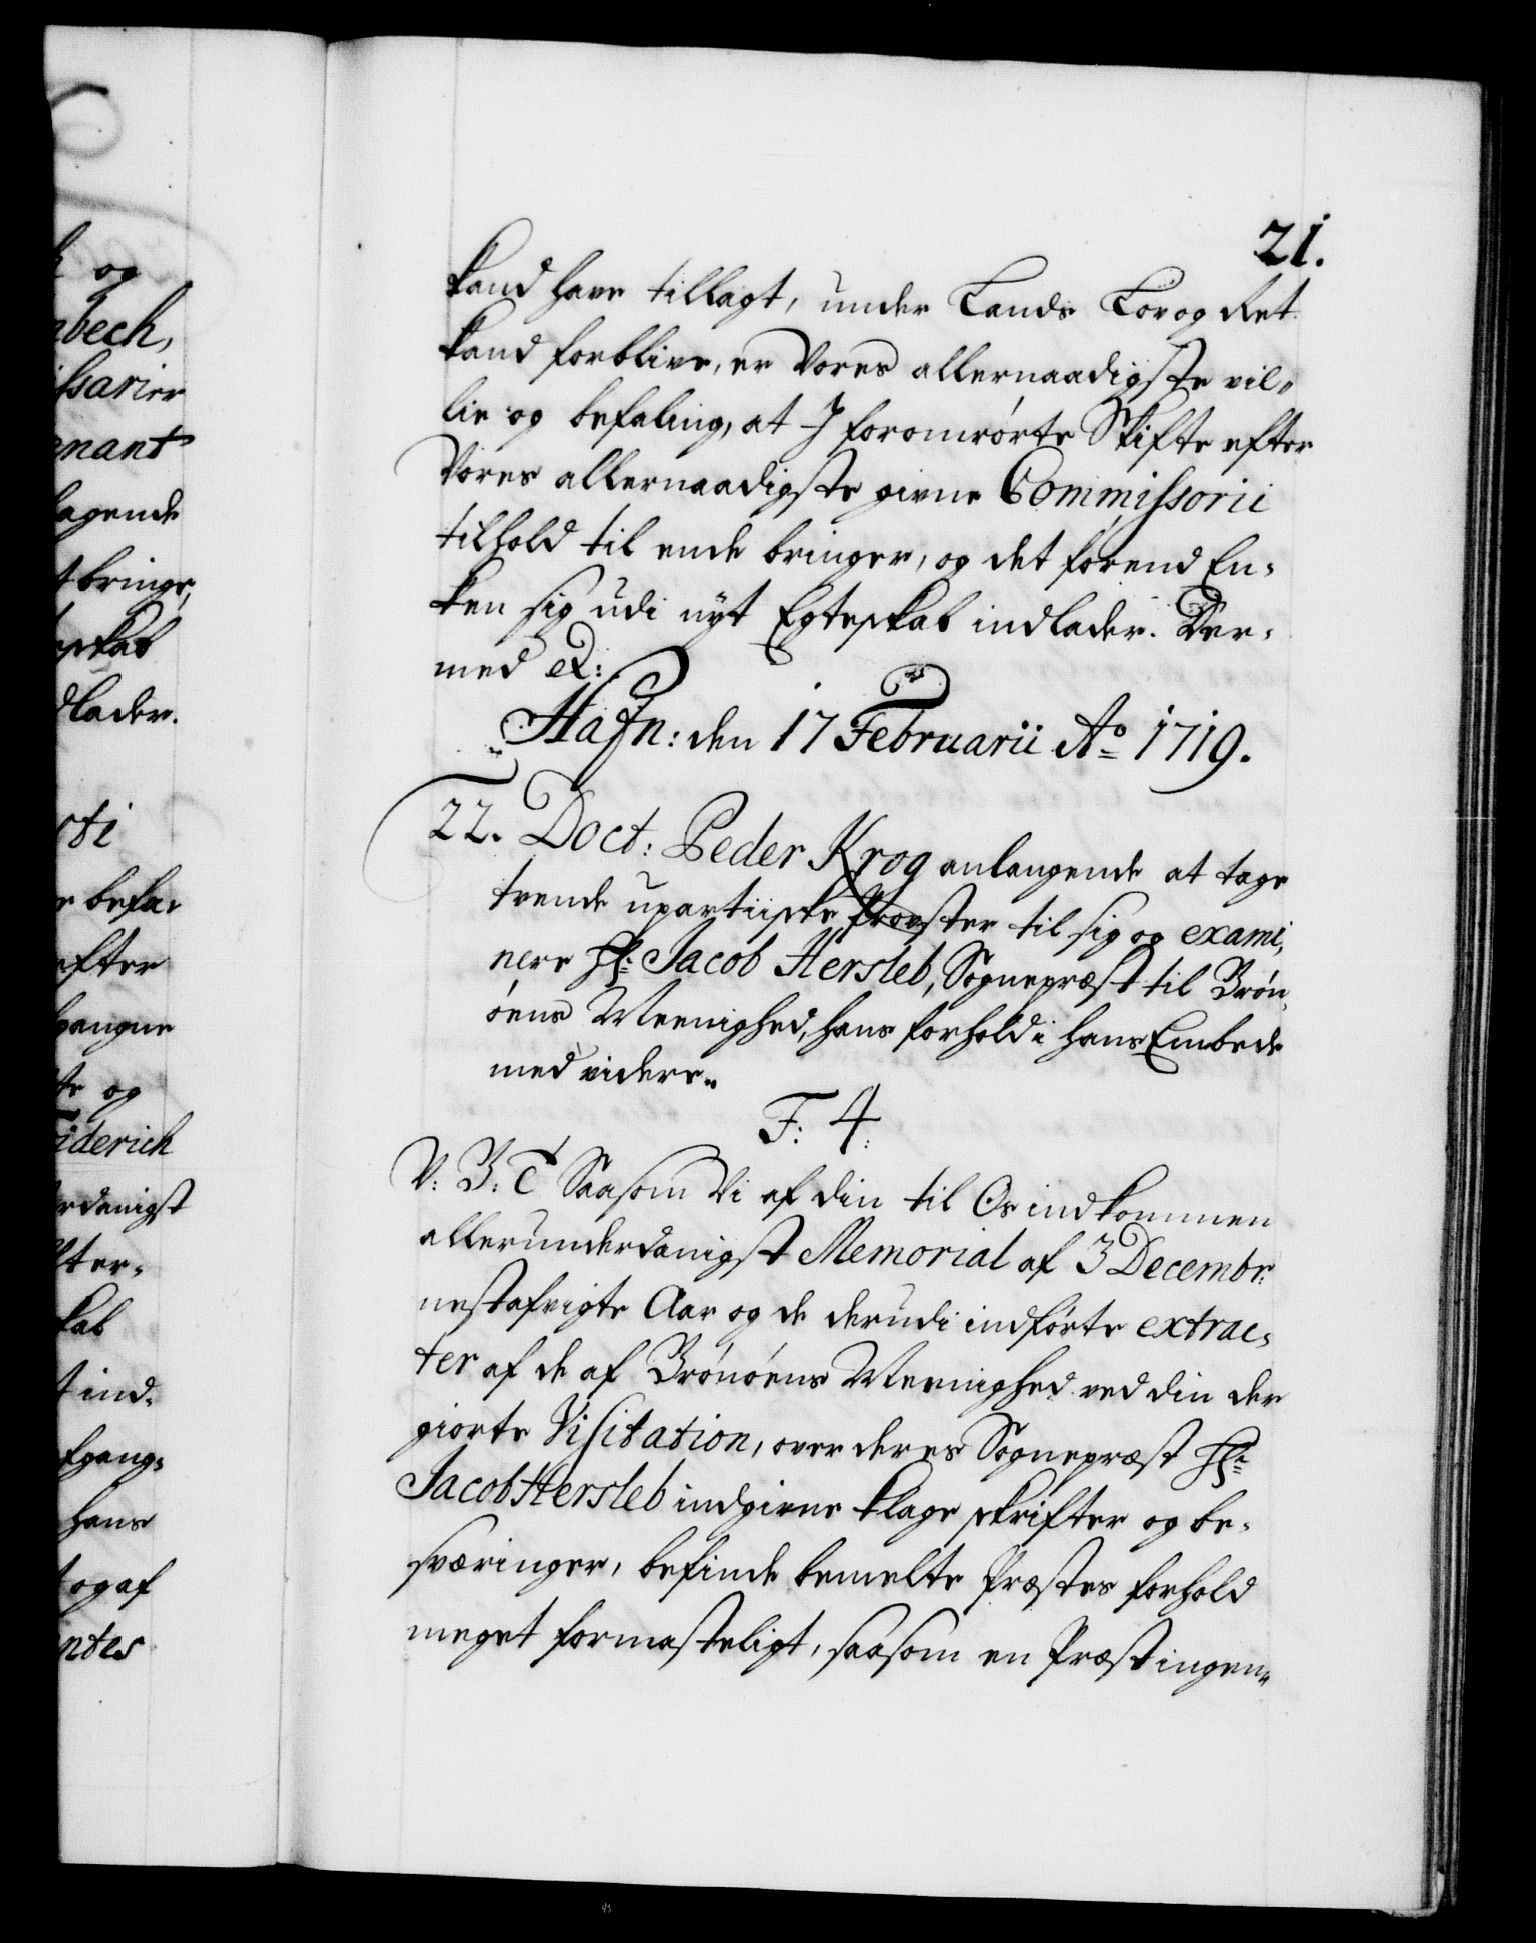 21.
kand have tillagt, under Lands Lov og Ret
kand forblive, er Vores allernaadigste vil„
lie og befaling, at I foromrørte Skifte efter
Vores allernaadigste givne Commissorii
tilhold til ende bringer, og det førend En„
ken sig udi nyt Egteskab indlader. Der„
med etc:
Hafn: den 17 Februarii Ao 1719.
22. Doct: Peder Krog anlangende at tage
trende upartiiske Provster til sig og exami„
nere Hr: Jacob Hersleb, Sognepræst til Brøn„
øens Meenighed, hans forhold i hans Embede
med videre.
F: 4
V: B: T Saasom Vi af din til Os indkommen
allerunderdanigst Memorial af 3 Decembr:
nestafvigte Aar og de derudi indførte extrac„
ter af de af Brønøens Meenighed ved din der
giorte Visitation, over deres Sognepræst Hr:
Jacob Hersleb indgivne klage skrifter og be„
sværinger, befinde bemelte Præstes forhold
meget formasteligt, saasom en Præst ingen„
og
bech,
ssarier
enant
agende
t bringe,
skab
dlader.
cti
e befa„
efter
gangne
te og
iderich
rdanigst
lter„
kab
t ind„
fgang„
hans
t og af
ntes